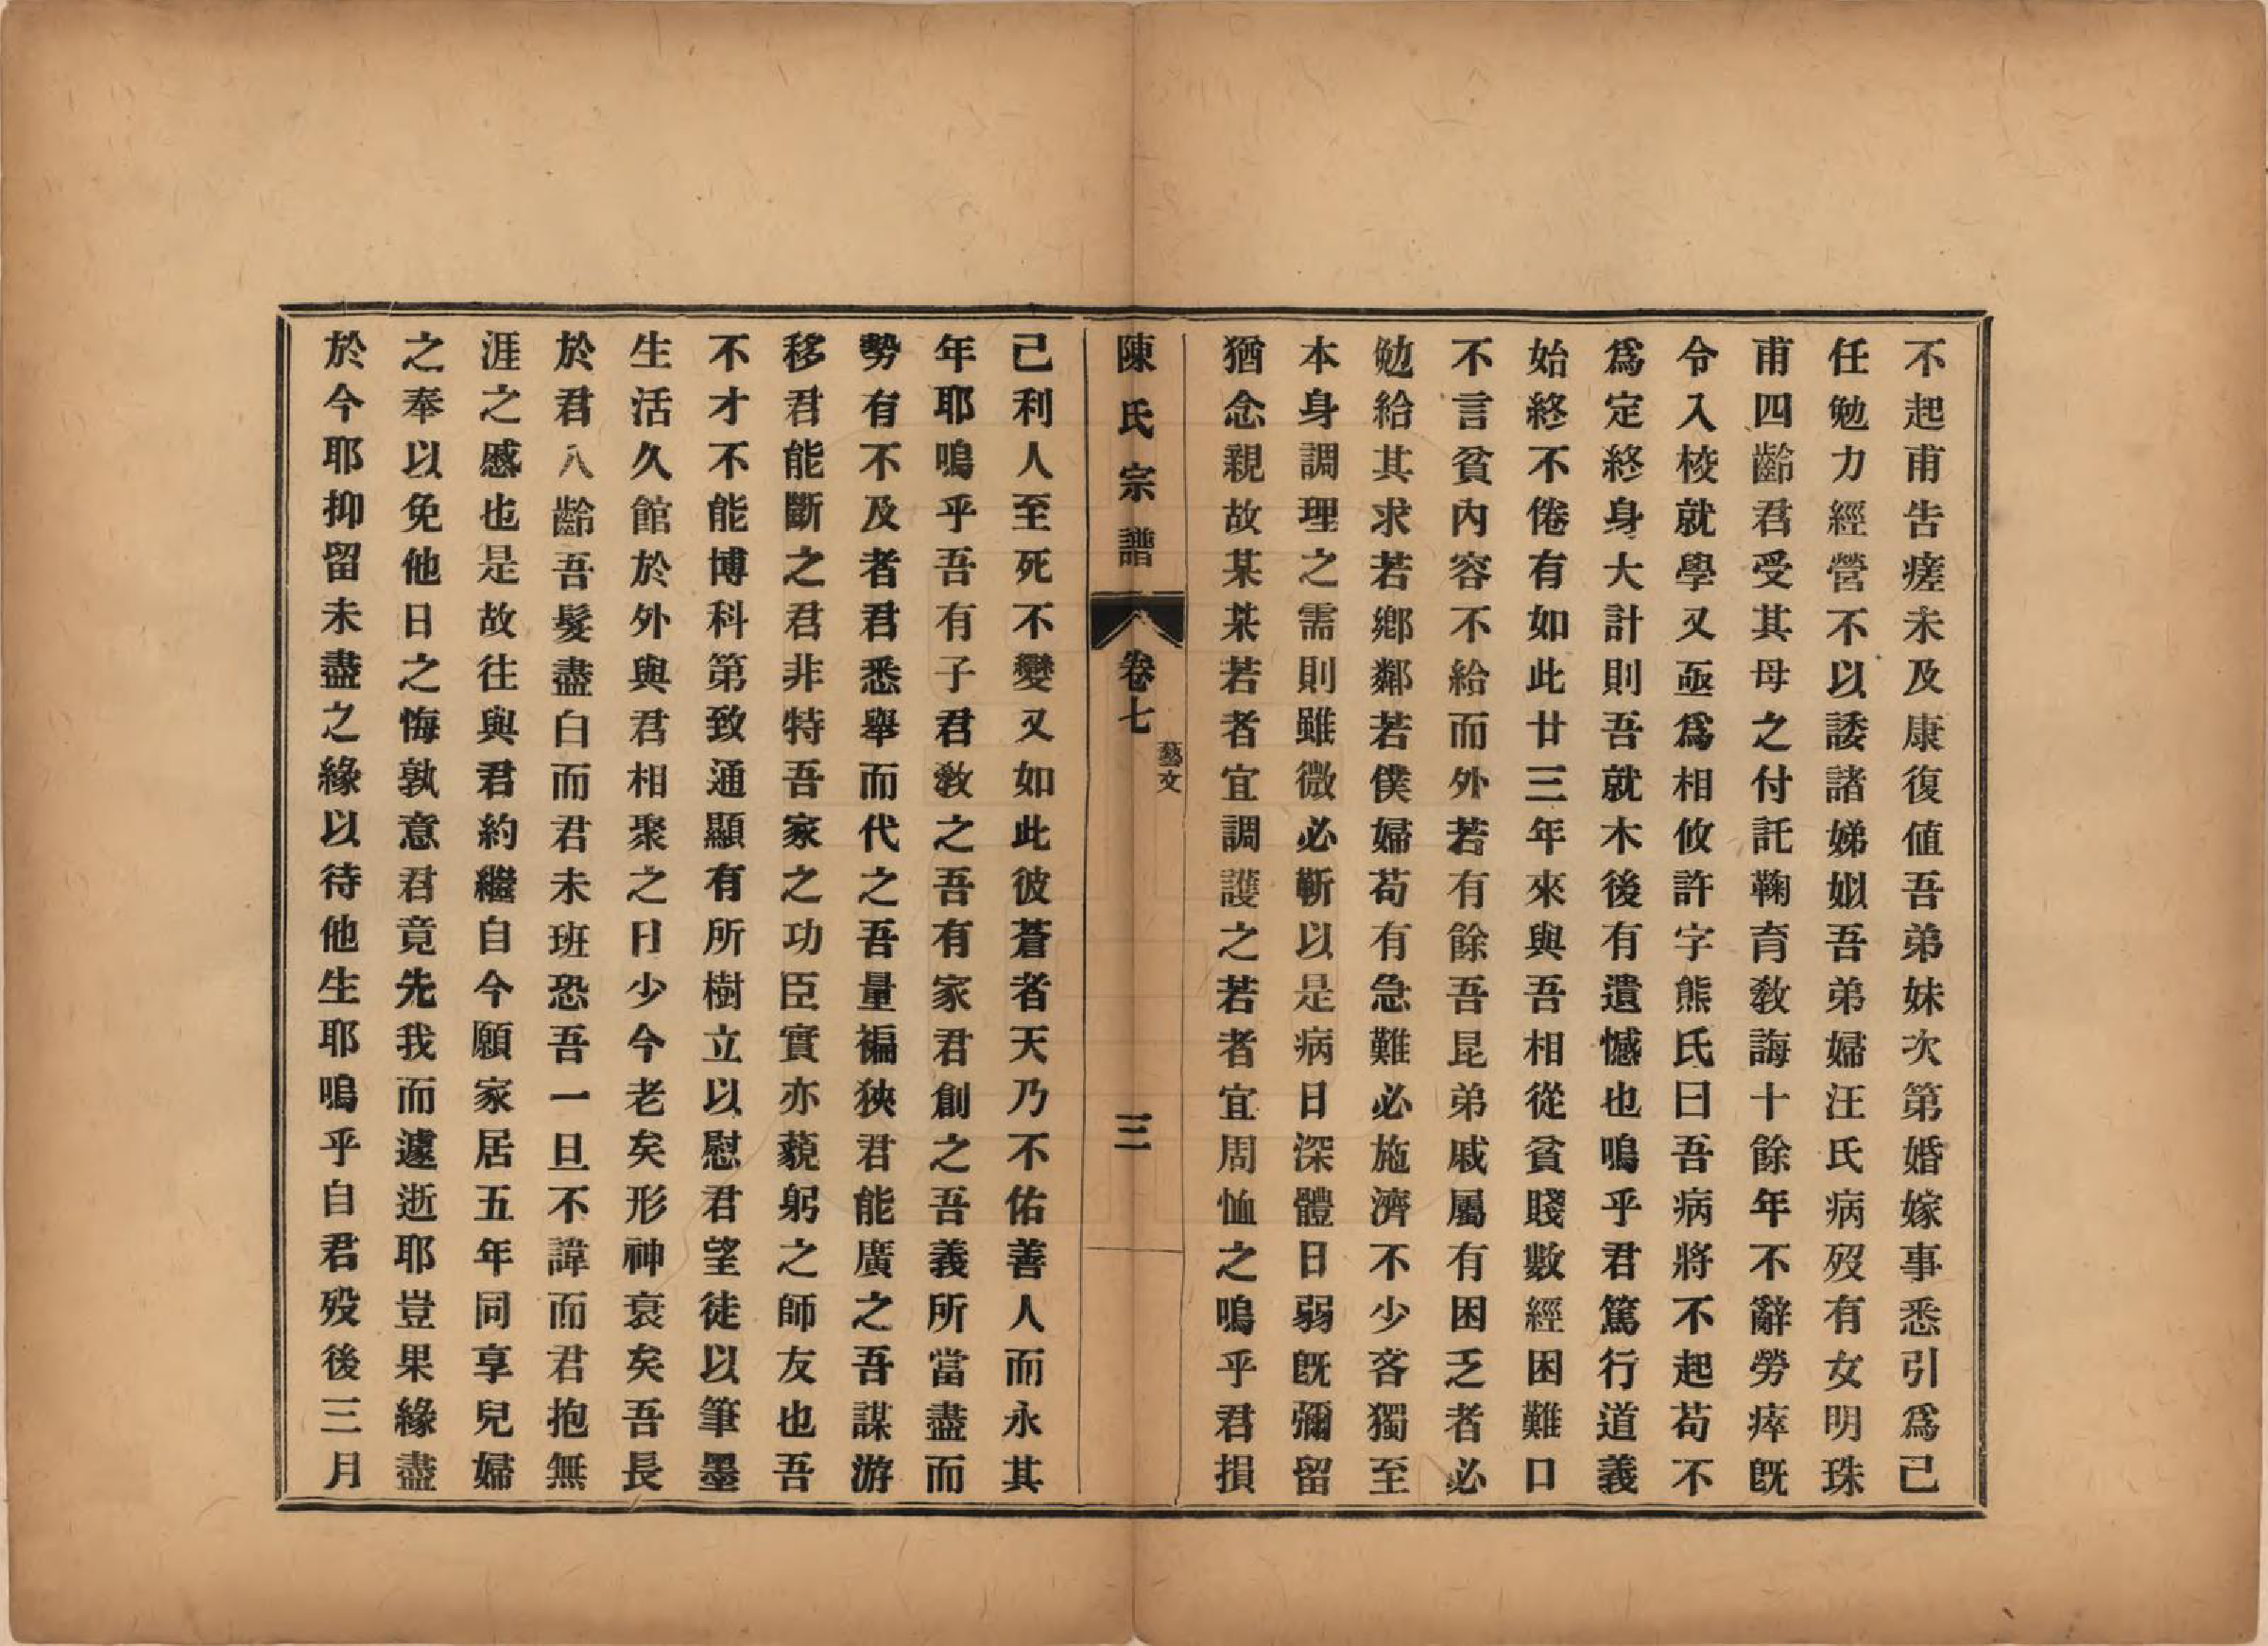 不起甫告瘥未及康復値吾弟妹次第婚嫁事悉引爲己
任勉力經營不以諉諸娣姒吾弟婦汪氏病歿有女明珠
甫四齡君受其母之付託鞠育敎誨十餘年不辭勞瘁旣
令入校就學又亟爲相攸許字熊氏曰吾病將不起苟不
爲定終身大計則吾就木後有遺憾也嗚乎君篤行道義
始終不倦有如此廿三年來與吾相從貧賤數經困難口
不言貧內容不給而外若有餘吾昆弟戚屬有困乏者必
勉給其求若鄕鄰若僕婦苟有急難必施濟不少吝獨至
本身調理之需則雖微必靳以是病日深體日弱旣彌留
猶念親故某某若者宜調護之若者宜周恤之嗚乎君損
陳氏宗譜
卷七
藝文
三
己利人至死不變又如此彼蒼者天乃不佑善人而永其
年耶嗚乎吾有子君敎之吾有家君創之吾義所當盡而
勢有不及者君悉舉而代之吾量褊狹君能廣之吾謀游
移君能斷之君非特吾家之功臣實亦藐躬之師友也吾
不才不能博科第致通顯有所樹立以慰君望徒以筆墨
生活久館於外與君相聚之日少今老矣形神衰矣吾長
於君八齡吾髮盡白而君未班恐吾一旦不諱而君抱無
涯之慼也是故往與君約繼自今願家居五年同享兒婦
之奉以免他日之悔孰意君竟先我而遽逝耶豈果緣盡
於今耶抑留未盡之緣以待他生耶嗚乎自君歿後三月